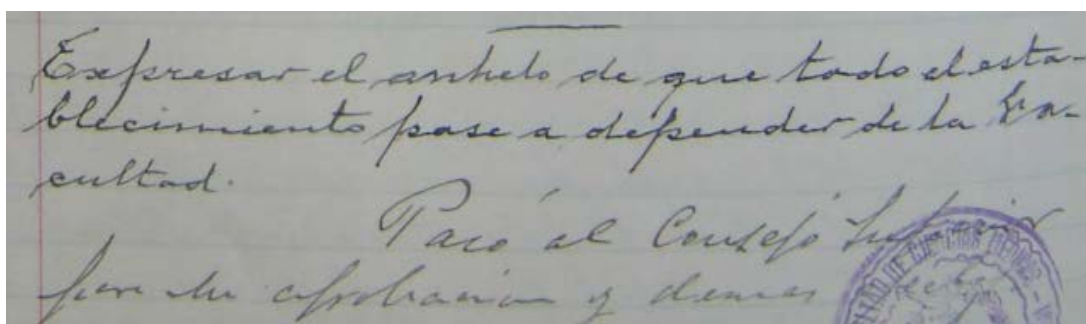 Expresar el anhelo de que todo el esta-
blecimiento pase a depender de la Fa-
cultad.
Pasó al Consejo Superior
para su aprobación y demas
LTAD DE CIENCIAS MEDICAS